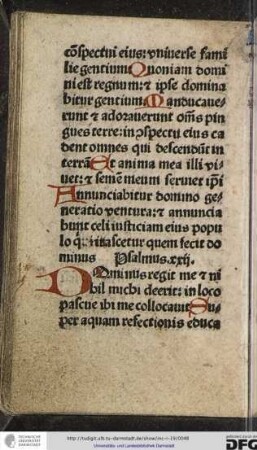 cōspectui eius: vniuerse fami
lie gentium Quoniam domi
ni est regnum: ⁊ ipse domina
bitur gentium. Manducaue-
runt ⁊ adorauerunt om̄s pin
gues terre: in ꝯspectu eius ca
dent omnes qui descendūt in
terrā Et anima mea illi vi-
uet: ⁊ semē meum seruiet ip̄i
Annunciabitur domino ge-
neratio ventura: ⁊ annuncia
bunt celi iusticiam eius popu
lo qui nascetur quem fecit do
minus Psalmus.xxij.
Dominus regit me ⁊ ni
hil michi deerit: in loco
pascue ibi me collocauit Su-
per aquam refectionis educa
TECHNISCHE
UNIVERSITÄT
DARMSTADT
http://tudigit.ulb.tu-darmstadt.de/show/inc-ii-19/0048
Universitäts- und Landesbibliothek Darmstadt
DFG